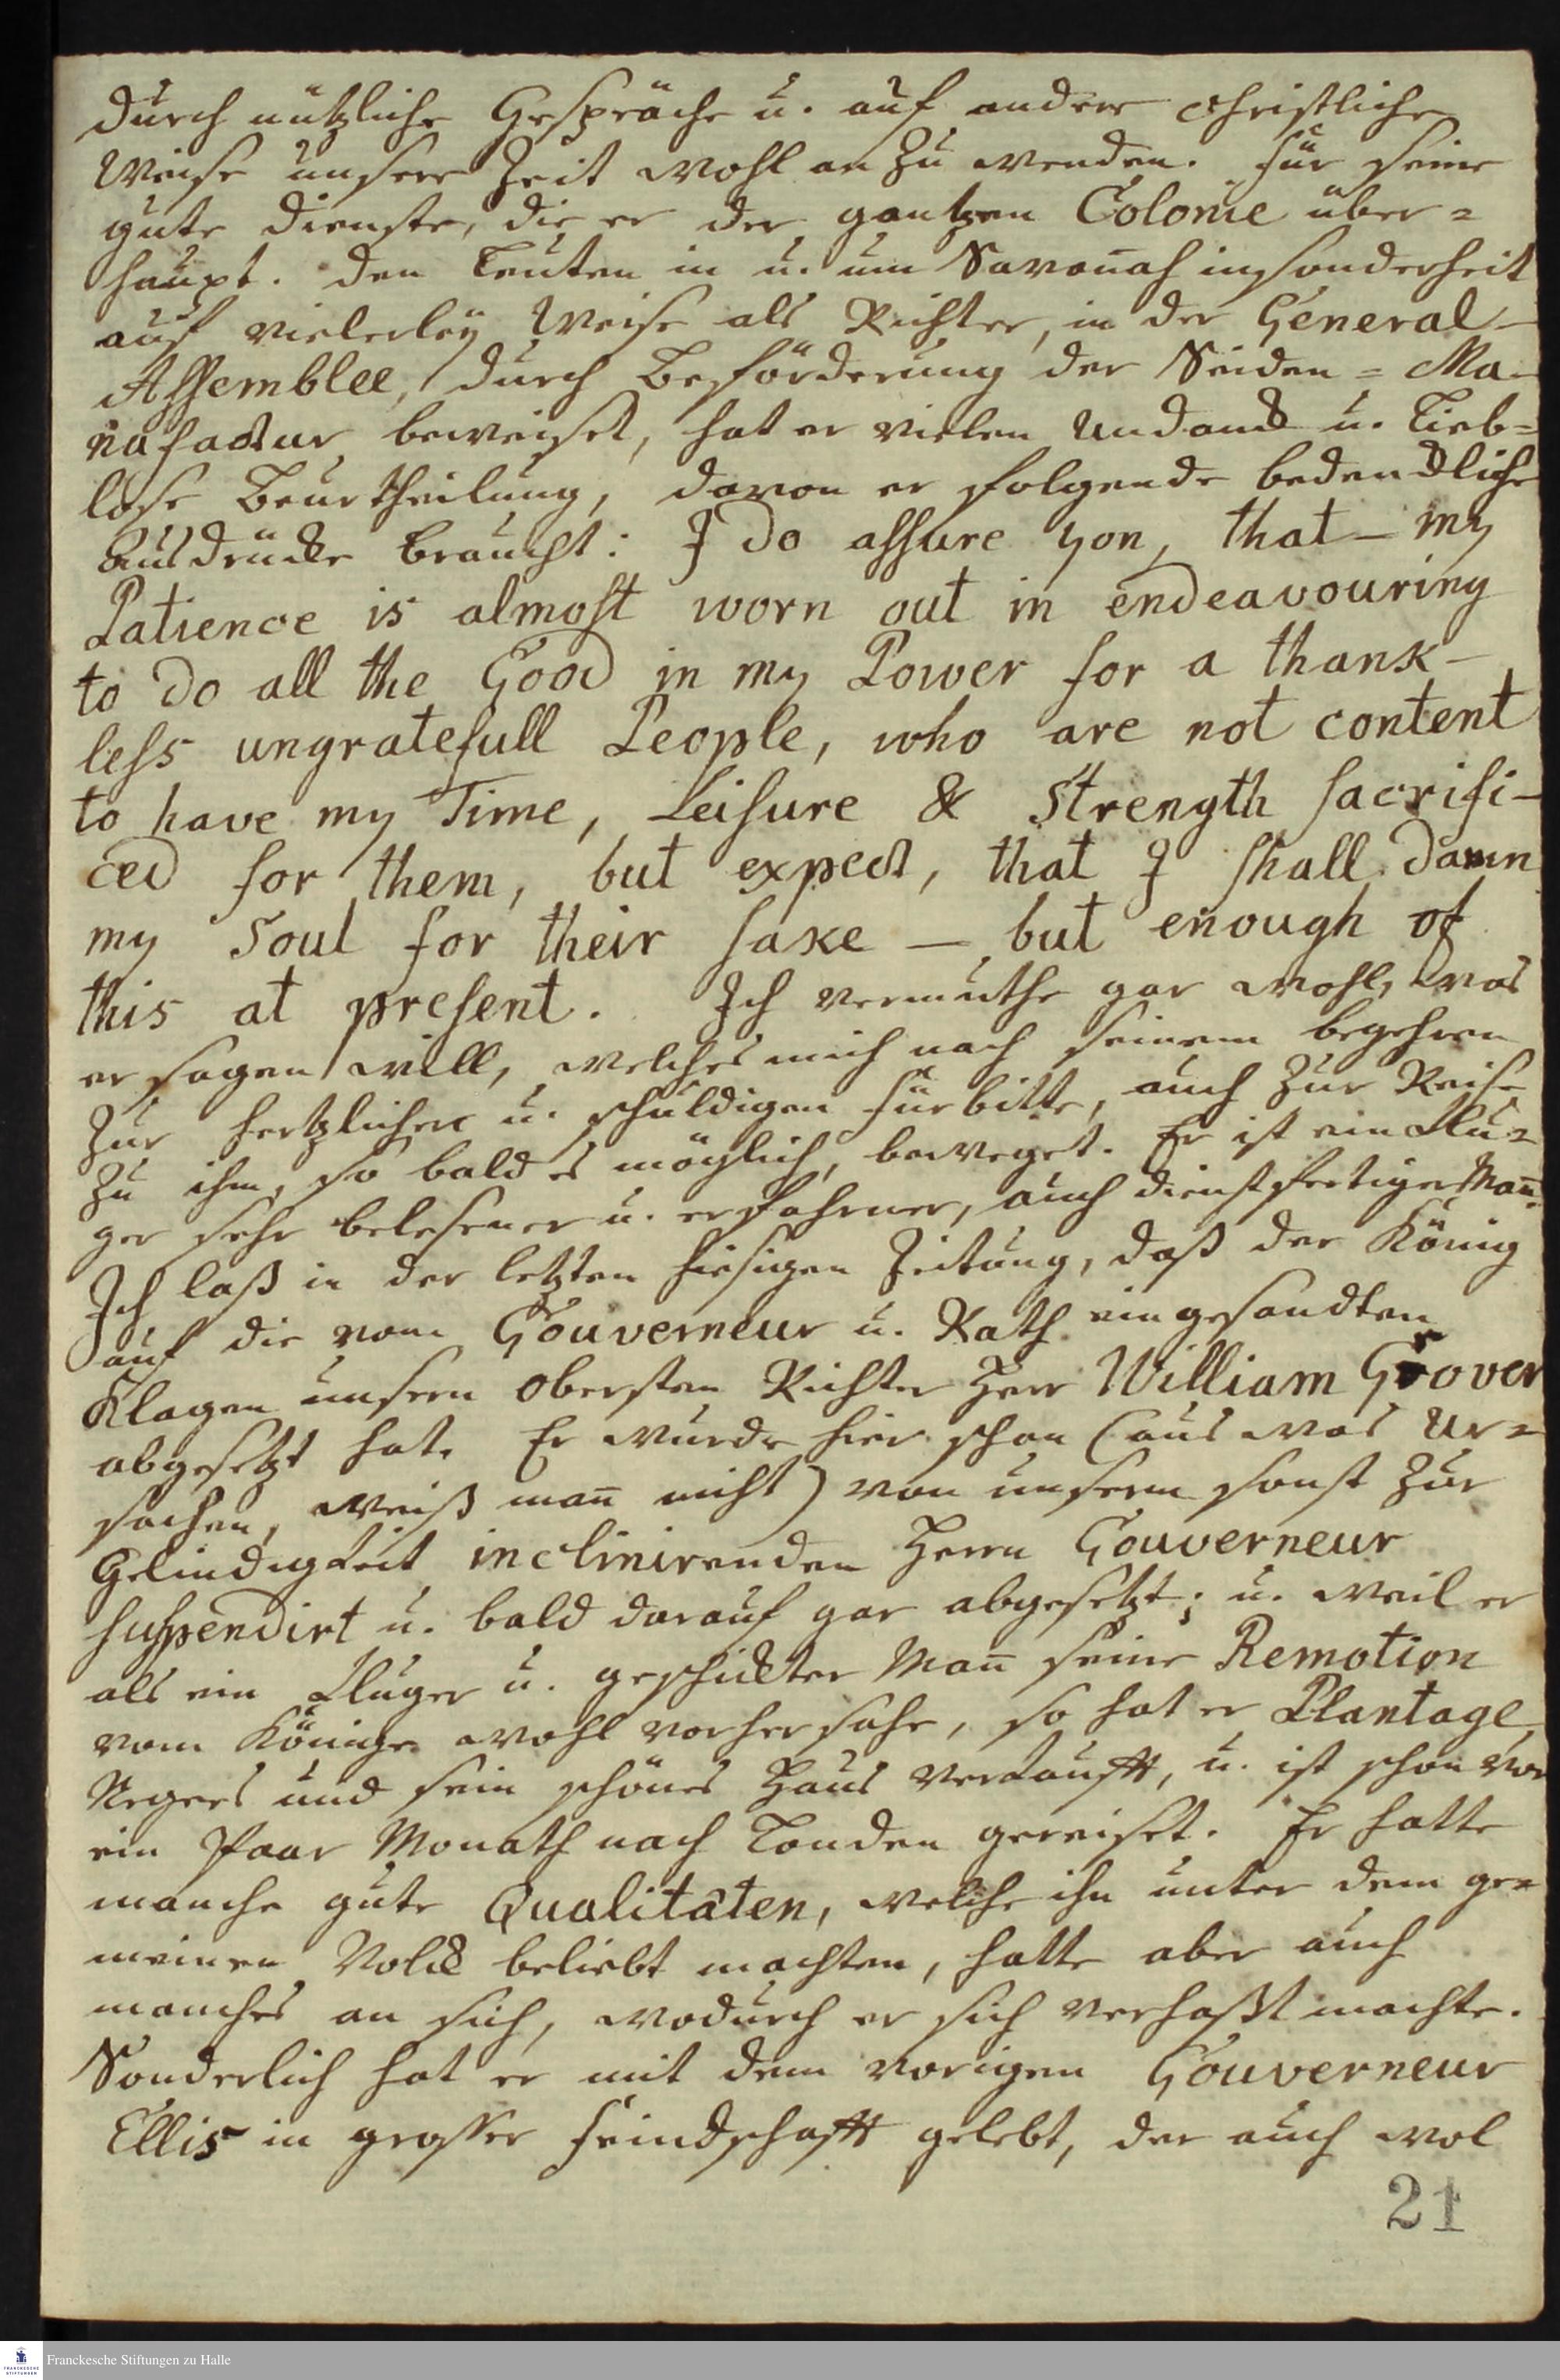 durch nützliche Gespräche u. auf andere christliche
Weise unsere Zeit wohl an zu wenden. Für seine
gute Dienste, die er der gantzen Colonie über=
haupt. den Leuten in u. um Savan̄ah insonderheit
auf vielerley Weise als Richter, in der General-
Assemblee, durch Beförderung der Seiden=Ma-
nufactur beweiset, hat er vielen Undanck u. Lieb=
lose Beurtheilung, davon er folgende bedenckliche
Ausdrücke braucht: I do assure you, that - my
Patience is almost worn out in endeavouring
to do all the Good in my Power for a thank-
less ungratefull People, who are not content
to have my Time, Leisure & Strength sacrifi-
ced for them, but expect, that I shall damn
my Soul for their sake — but enough of
this at present. Ich vermuthe gar wohl, was
er sagen will, welches mich nach seinem begehren
zur hertzlichen u. schuldigen Fürbitte, auch zur Reise
zu ihm, so bald es möglich, beweget. Er ist ein klu=
ger sehr belesener u. erfahrner, auch dienstfertiger Man̄.
Ich laß in der letzten hiesigen Zeitung, daß der König
auf die vom Gouverneur u. Rath eingesandten
Klagen unsern obersten Richter Herr William Grover
abgesetzt hat. Er wurde hier schon (aus was Ur=
sachen, weiß man̄ nicht) von unserm sonst zur
Gelindigkeit inclinirenden Herrn Gouverneur
suspendirt u. bald darauf gar abgesetzt; u. weil er
als ein kluger u. geschickter Man̄ seine Remotion
vom Könige wohl vorher sahe, so hat er Plantage,
Negers und sein schönes Haus verkaufft, u. ist schon vor
ein Paar Monath nach Londen gereiset. Er hatte
manche gute Qualitäten, welche ihn unter dem ge=
meinen Volck beliebt machten, hatte aber auch
manches an sich, wodurch er sich verhaßt machte.
Sonderlich hat er mit dem vorigen Gouverneur
Ellis in grosser Feindschafft gelebt, der auch wol
21
Franckesche Stiftungen zu Halle
FRANCKESCHE STIFTUNGEN